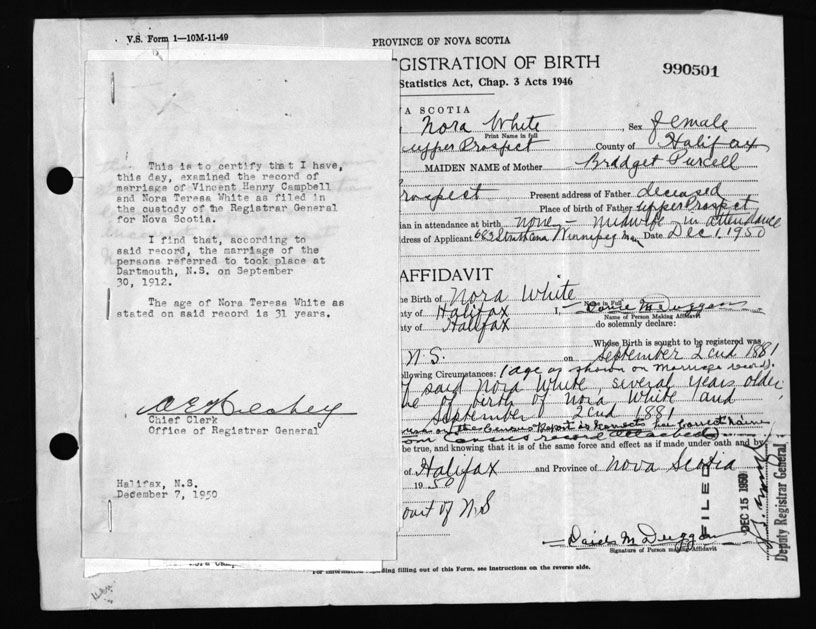 V.S. Form 1—10M-11-49
PROVINCE OF NOVA SCOTIA
GISTRATION OF BIRTH
990501
Statistics Act, Chap. 3 Acts 1946
A SCOTIA
Nora White Sex female
Print Name in full
upper Prospect County of Halifax
MAIDEN NAME of Mother Bradget Purcell
rospect Present address of Father deceased
Place of birth of Father upper Prospect
ian in attendance at birth none - midwife in attendance
dress of Applicant Winnipeg man Date Dec 1, 1950
This is to certify that I have,
this day, examined the record of
marriage of Vincent Henry Campbell
and Nora Teresa White as filed in
the custody of the Registrar General
for Nova Scotia.
I find that, according to
said record, the marriage of the
persons referred to took place at
Dartmouth, N.S. on September
30, 1912.
The age of Nora Teresa White as
stated on said record is 31 years.
Chief Clerk
Office of Registrar General
Halifax, N.S.
December 7, 1950
AFFIDAVIT
he Birth of Nora White
Name in Full
ty of Halifax I, M Duggan
Name of Person Making Affidavit
ty of Halifax do solemnly declare:
Whose Birth is sought to be registered was
N.S. on September 2cnd 1881
ollowing Circumstances: (age as shown on marriage record).
said Nora White, several years older
of birth of Nora White and
September 2cnd 1881
the Census report is her correct name
on Census record attached
be true, and knowing that it is of the same force and effect as if made under oath and by
of Halifax and Province of Nova Scotia
1950
ourt of N.S
M Duggan
Signature of Person making Affidavit
FILED
DEC 15 1950
Deputy Registrar General
For information regarding filling out of this Form, see instructions on the reverse side.